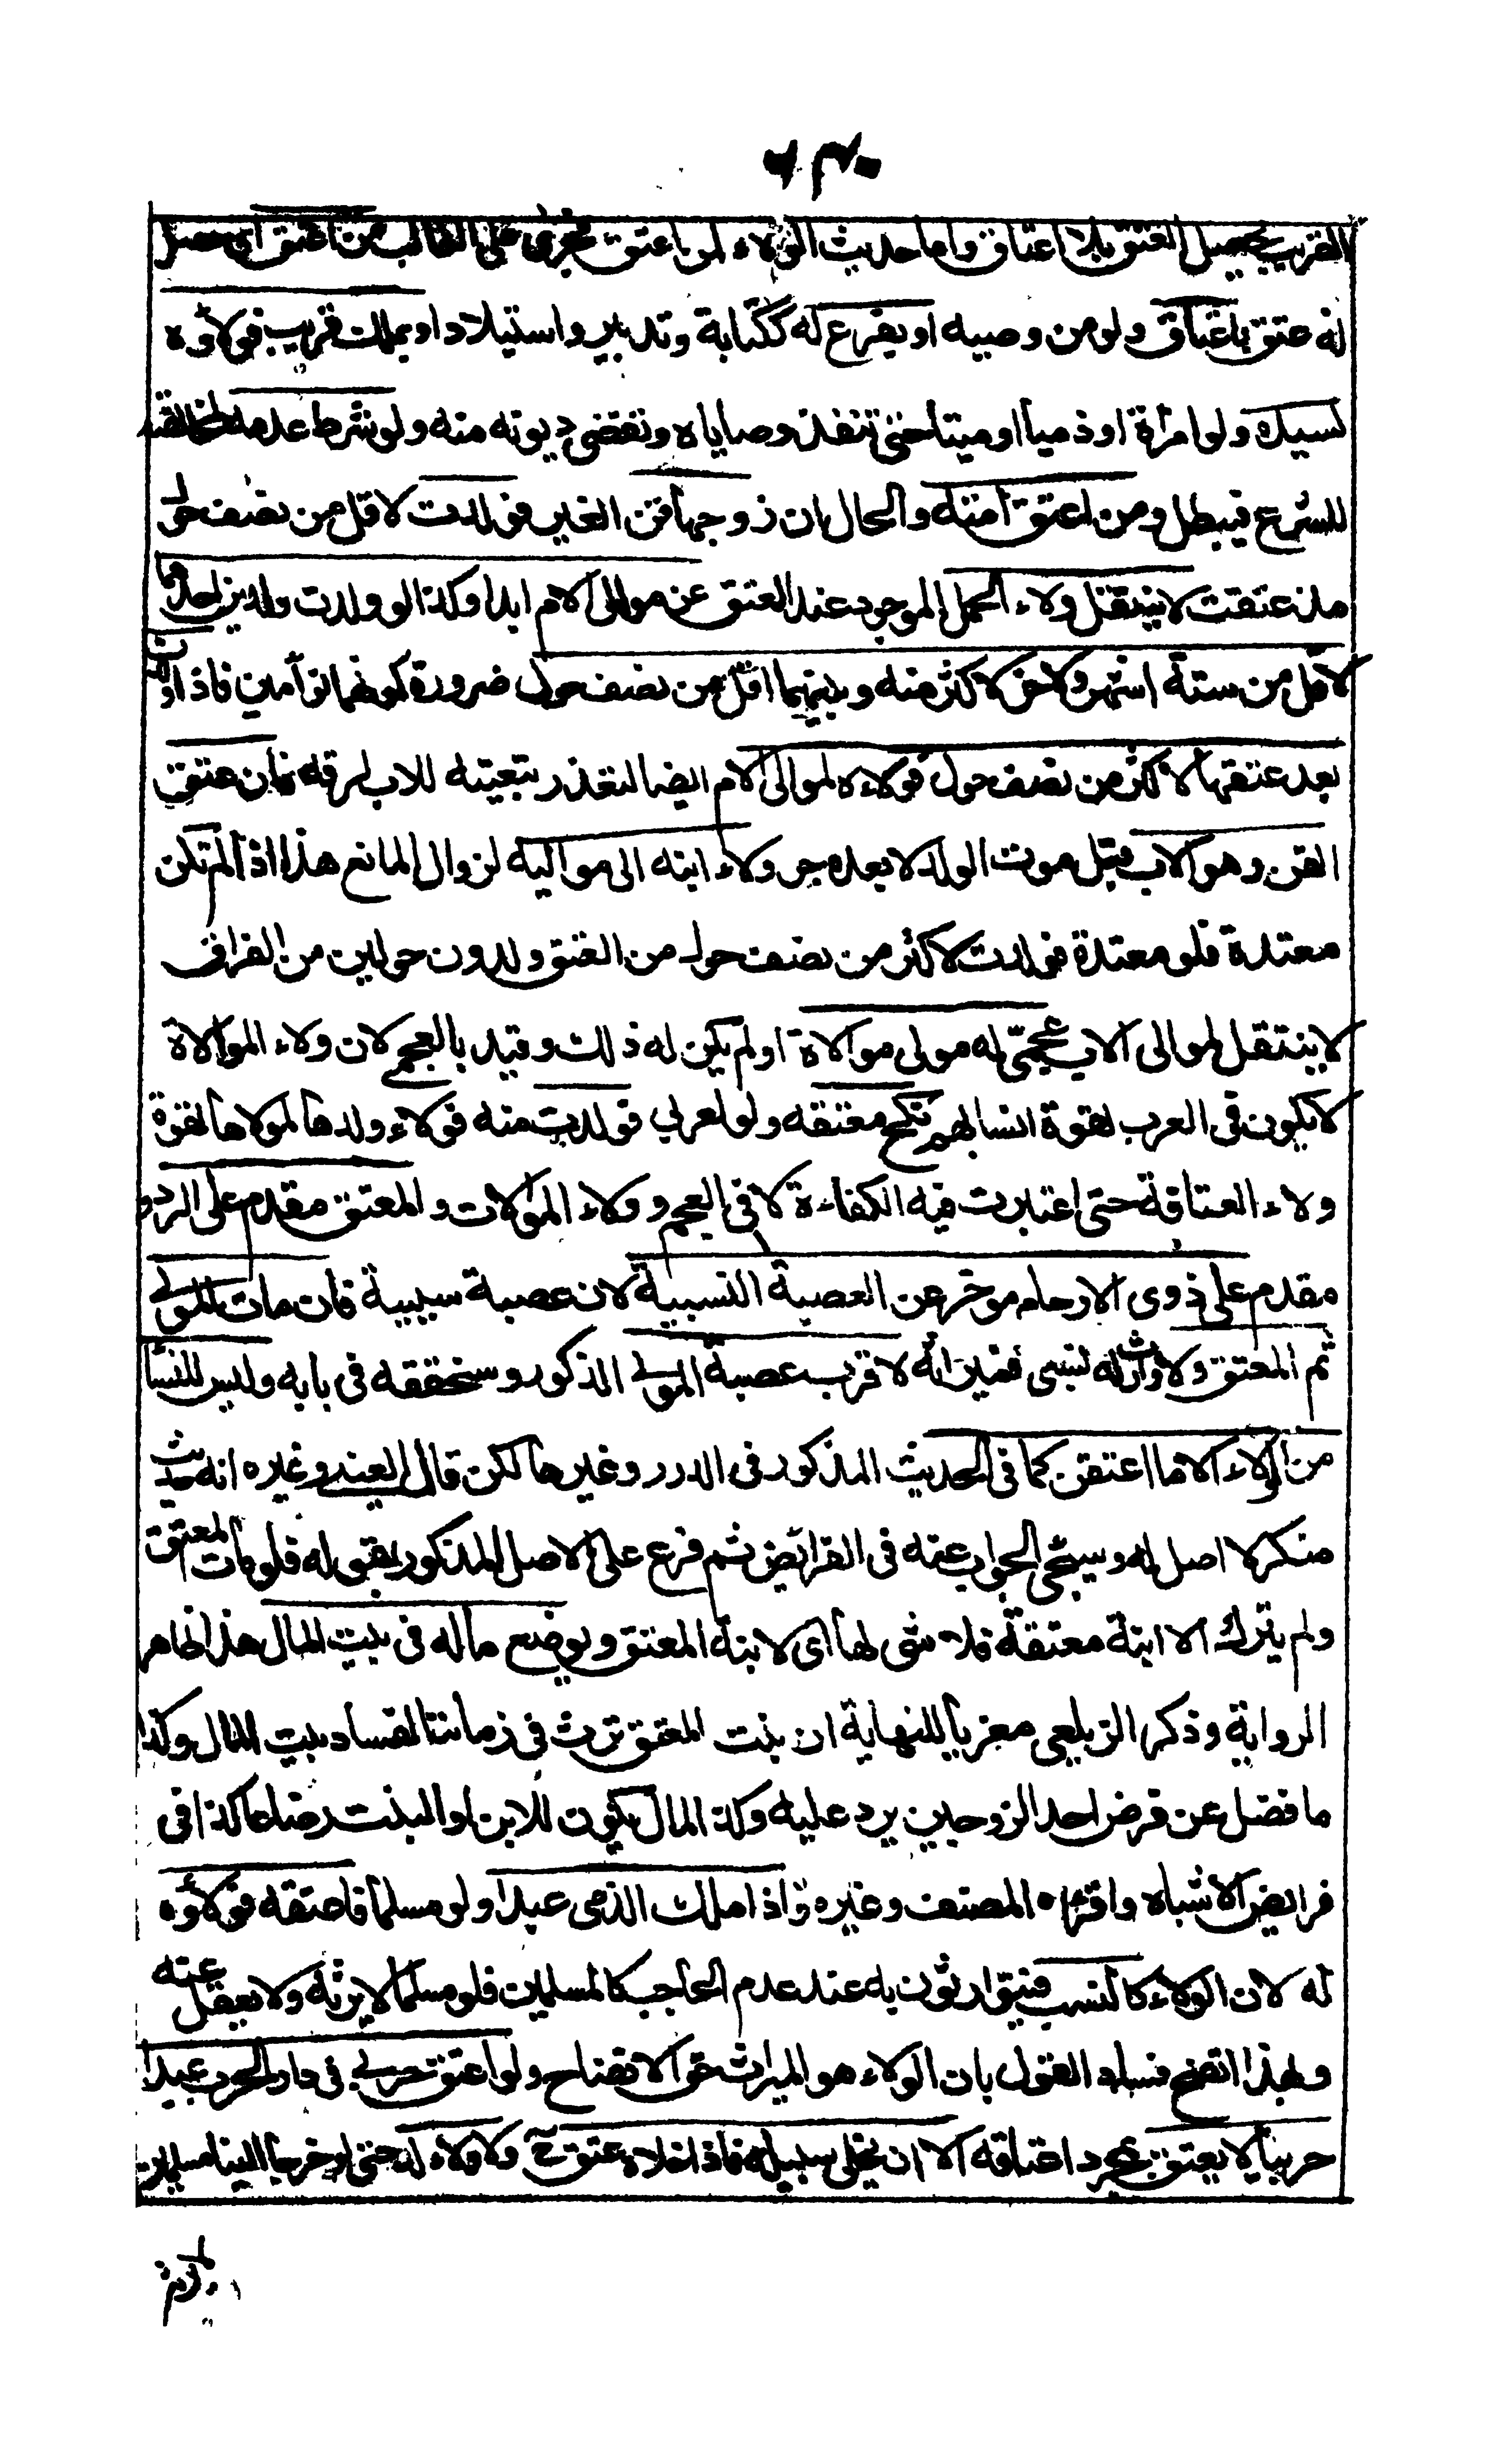 القريب يحصل العتق بلا اعتاق واما حديث الولاء لمن اعتق فجرى على الغالب من اعتق اى حصل
له عتق باعتاق ولو من وصيه او بفرع له ككتابة وتدبير واستيلاد او بملك قريب فولاؤه
لسيده ولو امراة او ذميا او ميتا حتى تنفذ وصاياه وتقضى ديونه منه ولو شرط عدمه لمخالفته
للشرع فيبطل ومن اعتق امته والحال ان زوجها قن الغير فولدت لاقل من نصف حول
مذ عتقت لا ينتقل ولاء الحمل الموجود عند العتق عن موالى الام ابدا وكذا لو ولدت ولدين احدهما
لاقل من ستة اشهر والاخر لاكثر منه وبينهما اقل من نصف حول ضرورة كونهما توأمين فاذا ولدت
بعد عتقها لاكثر من نصف حول فولاءه لموالى الام ايضا لتعذر تبعيته للاب لرقه فان عتق
القن وهو الاب قبل موت الولد لا بعده جر ولاء ابنه الى مواليه لزوال المانع هذا اذا لم تكن
معتدة فلو معتدة فولدت لاكثر من نصف حول من العتق ولدون حولين من الفراق
لا ينتقل لموالى الاب عجمىّ له مولى موالاة او لم يكن له ذلك وقيد بالعجمى لان ولاء الموالاة
لا يكون فى العرب لقوة انسابهم نكح معتقه ولو لعربى فولدت منه فولاء ولدها لمولاها لقوة
ولاء العتاقة حتى اعتبرت فيه الكفاءة لا فى العجم وولاء الموالات والمعتق مقدم على الرد و
مقدم على ذوى الارحام موخر عن العصبة النسبية لان عصبة سببية فان مات المولى
ثم المعتق ولا وارث له نسبى فميراثه لاقرب عصبة المولى المذكور وسنحققه فى بابه وليس للنسا
من الولاء الا ما اعتقن كما فى الحديث المذكور فى الدرر وغيرها لكن قال العينى وغيره انه حديث
منكر لا اصل له وسيجى الجواب عنه فى الفرائض ثم فرع على الاصل المذكور بقوله فلو مات المعتق
ولم يترك الا ابنة معتقة فلا شى لها اى لابنة المعتق ويوضع ماله فى بيت المال هذا ظاهر
الرواية وذكر الزيلعى معزيا للنهاية ان بنت المعتق ترث فى زماننا لفساد بيت المال وكذا
ما فضل عن فرض احد الزوجين يرد عليه وكذا المال يكون للابن او البنت رضاعا كذا فى
فرايض الاشباه واقره المصنف وغيره واذا ملك الذمى عبدا ولو مسلما فاعتقه فولاؤه
له لان الولاء كالنسب فيتوارثون به عند عدم الحاجب كالمسلمين فلو مسلما لا يرثه ولا يعقل عنه
وبهذا اتضح فساد القول بان الولاء هو الميراث حق الاتضاح ولو اعتق حربى فى دار الحرب عبدا
حربيا لا يعتق بمجرد اعتاقه الا ان يخلى سبيله فاذا خلاه عتق ح ولا ولاء له حتى لو خرجا الينا مسلمين